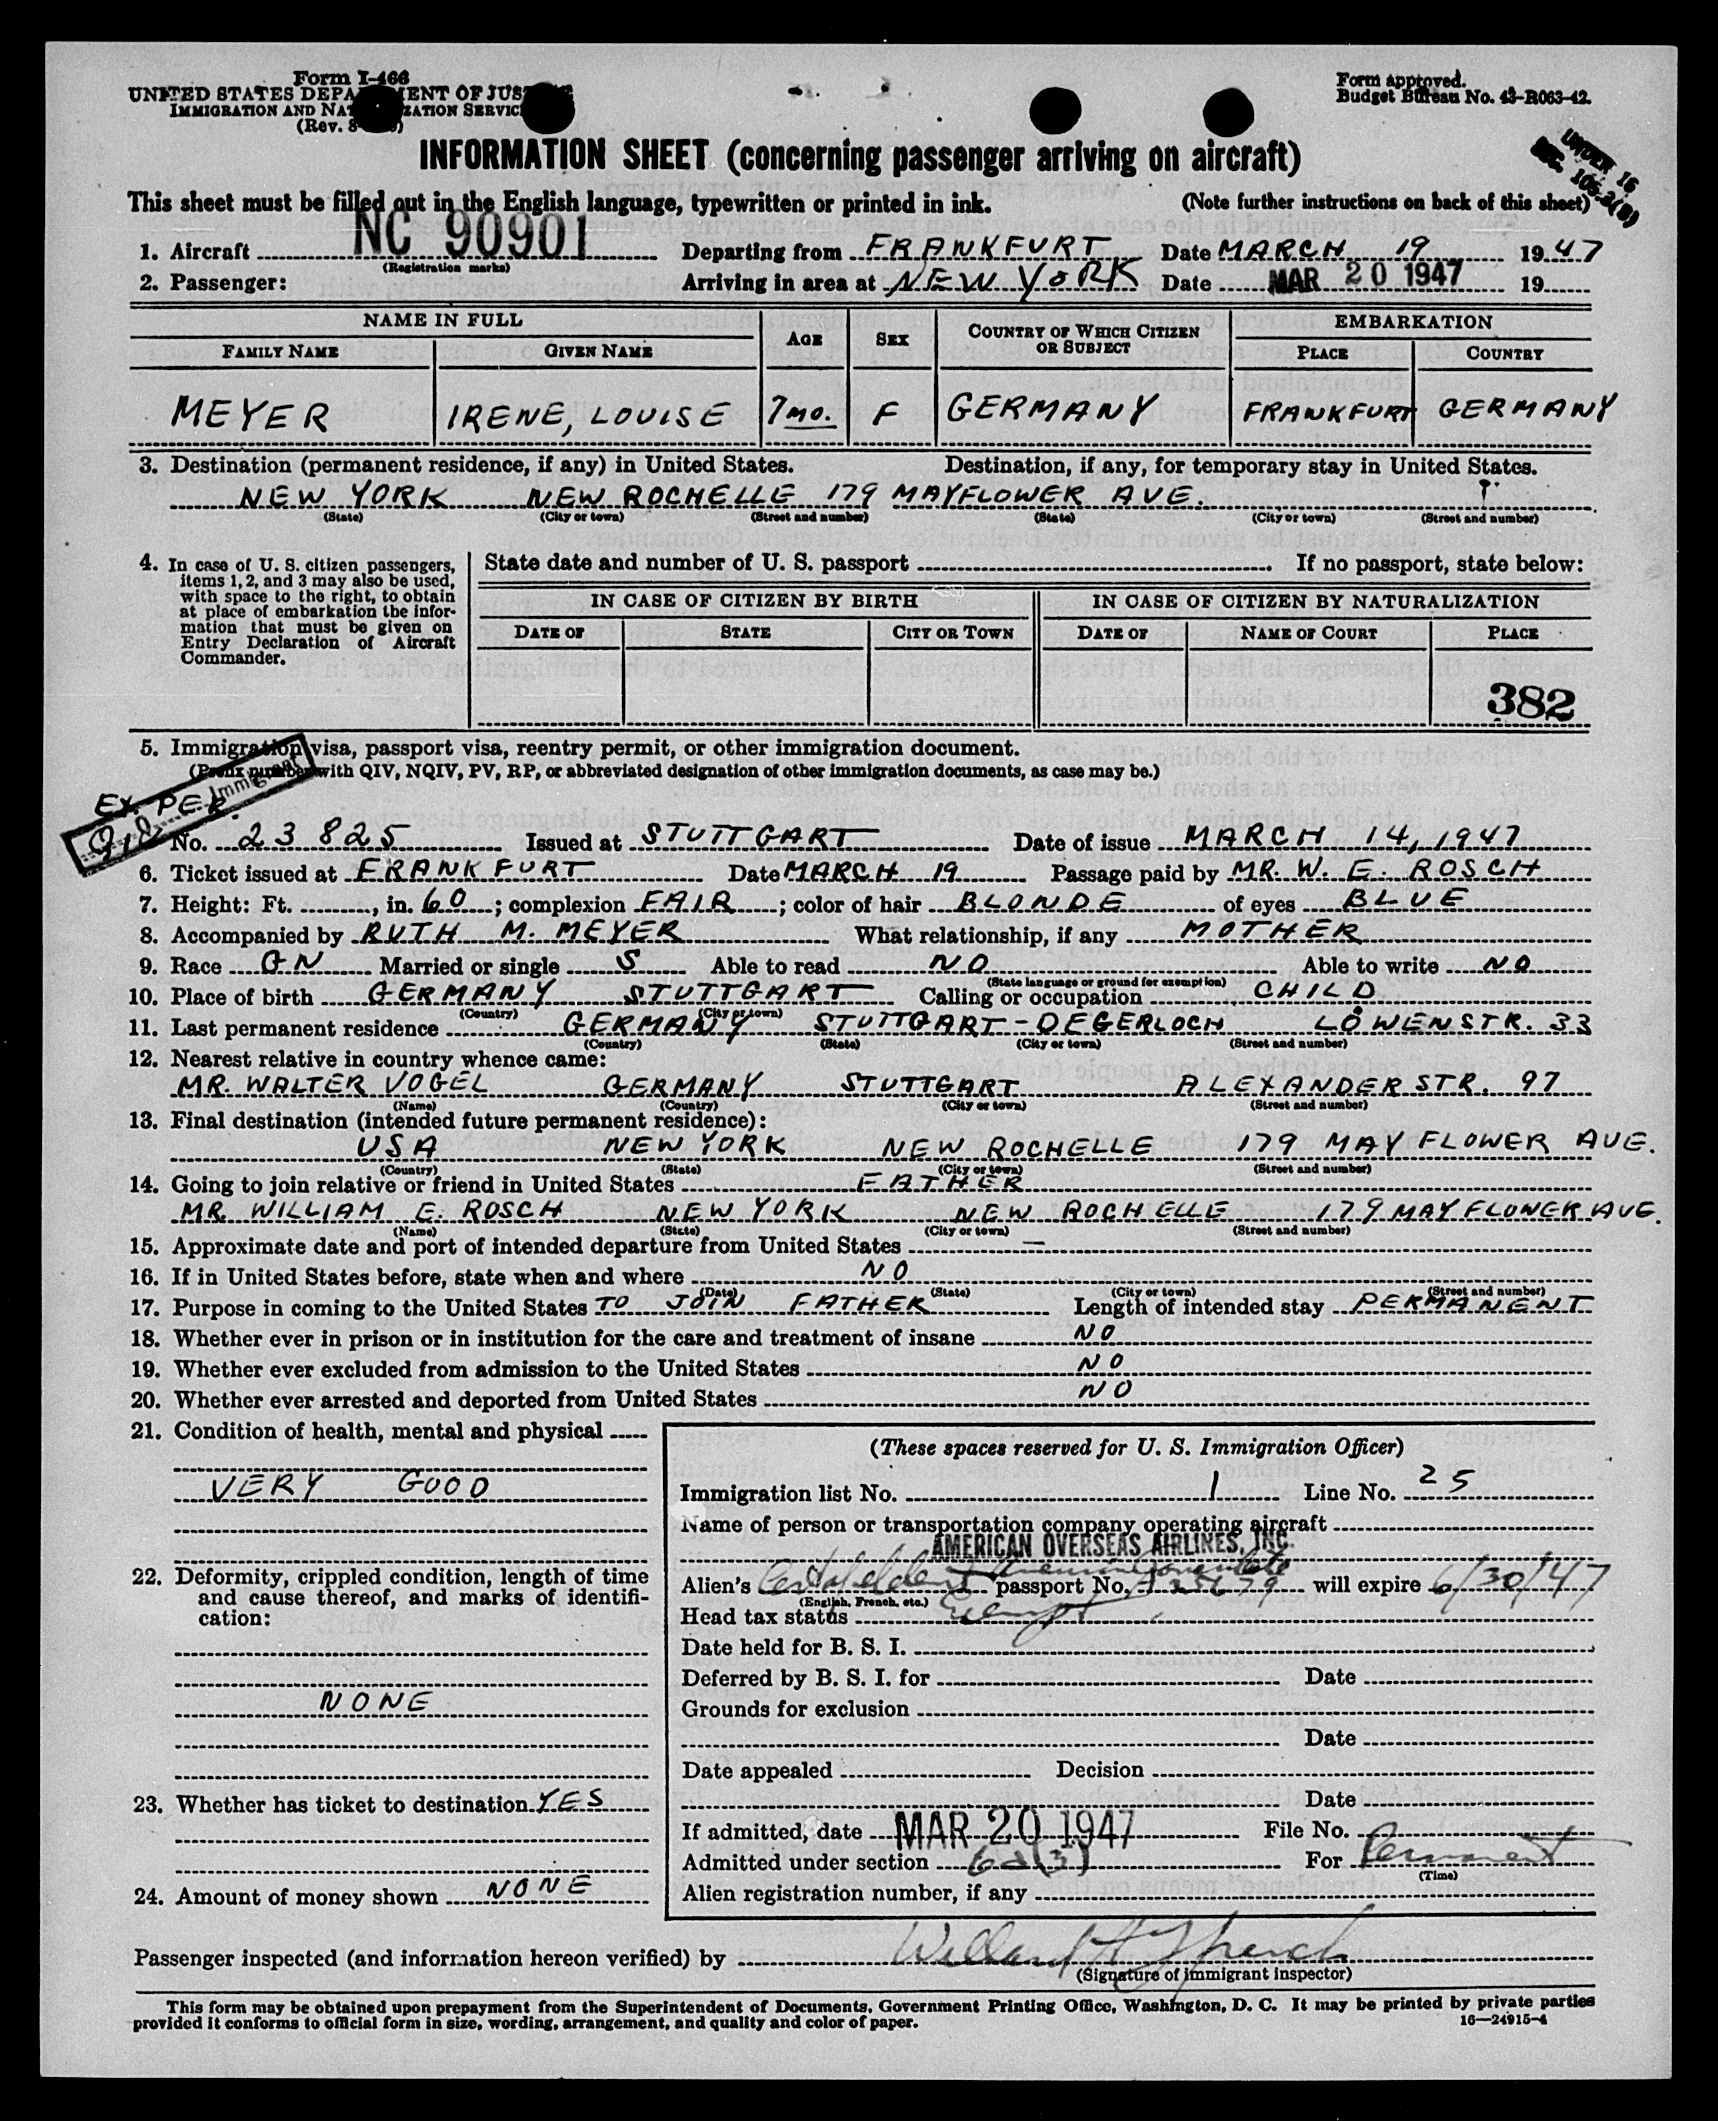 Form I-466
UNITED STATES DEPARTMENT OF JUSTICE
IMMIGRATION AND NATURALIZATION SERVICE
(Rev. 8-
Form approved.
Budget Bureau No. 43-R063-42.
UNDER 16
SEC. 105.3(B)
INFORMATION SHEET (concerning passenger arriving on aircraft)
This sheet must be filled out in the English language, typewritten or printed in ink. (Note further instructions on back of this sheet)
1. Aircraft NC 90901 Departing from FRANKFURT Date MARCH 19 1947
(Registration marks)
2. Passenger: Arriving in area at NEW YORK Date MAR 20 1947 19
NAME IN FULL AGE SEX COUNTRY OF WHICH CITIZEN OR SUBJECT EMBARKATION
FAMILY NAME GIVEN NAME PLACE COUNTRY
MEYER IRENE, LOUISE 7 mo. F GERMANY FRANKFURT GERMANY
3. Destination (permanent residence, if any) in United States. Destination, if any, for temporary stay in United States.
NEW YORK NEW ROCHELLE 179 MAYFLOWER AVE.
(State) (City or town) (Street and number) (State) (City or town) (Street and number)
4. In case of U. S. citizen passengers, items 1, 2, and 3 may also be used, with space to the right, to obtain at place of embarkation the information that must be given on Entry Declaration of Aircraft Commander.
State date and number of U. S. passport If no passport, state below:
IN CASE OF CITIZEN BY BIRTH IN CASE OF CITIZEN BY NATURALIZATION
DATE OF STATE CITY OR TOWN DATE OF NAME OF COURT PLACE
382
5. Immigration visa, passport visa, reentry permit, or other immigration document.
(Prefix number with QIV, NQIV, PV, RP, or abbreviated designation of other immigration documents, as case may be.)
Immigrant
EX. PER.
QIV No. 23825 Issued at STUTTGART Date of issue MARCH 14, 1947
6. Ticket issued at FRANKFURT Date MARCH 19 Passage paid by MR. W. E. ROSCH
7. Height: Ft. , in. 60; complexion FAIR; color of hair BLONDE of eyes BLUE
8. Accompanied by RUTH M. MEYER What relationship, if any MOTHER
9. Race GN Married or single S Able to read NO Able to write NO
(State language or ground for exemption)
10. Place of birth GERMANY STUTTGART Calling or occupation CHILD
(Country) (City or town)
11. Last permanent residence GERMANY STUTTGART-DEGERLOCH LÖWENSTR. 33
(Country) (State) (City or town) (Street and number)
12. Nearest relative in country whence came:
MR. WALTER VOGEL GERMANY STUTTGART ALEXANDERSTR. 97
(Name) (Country) (City or town) (Street and number)
13. Final destination (intended future permanent residence):
USA NEW YORK NEW ROCHELLE 179 MAYFLOWER AVE.
(Country) (State) (City or town) (Street and number)
14. Going to join relative or friend in United States FATHER
MR. WILLIAM E. ROSCH NEW YORK NEW ROCHELLE 179 MAYFLOWER AVE.
(Name) (State) (City or town) (Street and number)
15. Approximate date and port of intended departure from United States —
16. If in United States before, state when and where NO
(Date) (State) (City or town) (Street and number)
17. Purpose in coming to the United States TO JOIN FATHER Length of intended stay PERMANENT
18. Whether ever in prison or in institution for the care and treatment of insane NO
19. Whether ever excluded from admission to the United States NO
20. Whether ever arrested and deported from United States NO
21. Condition of health, mental and physical
VERY GOOD
22. Deformity, crippled condition, length of time and cause thereof, and marks of identification:
NONE
23. Whether has ticket to destination YES
24. Amount of money shown NONE
(These spaces reserved for U. S. Immigration Officer)
Immigration list No. 1 Line No. 25
Name of person or transportation company operating aircraft
AMERICAN OVERSEAS AIRLINES, INC.
Alien's passport No. will expire 6/30/47
(English, French, etc.)
Head tax status Exempt
Date held for B. S. I.
Deferred by B. S. I. for Date
Grounds for exclusion
Date
Date appealed Decision
Date
If admitted, date MAR 20 1947 File No.
Admitted under section 6a(3) For Permanent
(Time)
Alien registration number, if any
Passenger inspected (and information hereon verified) by
(Signature of immigrant inspector)
This form may be obtained upon prepayment from the Superintendent of Documents, Government Printing Office, Washington, D. C. It may be printed by private parties
provided it conforms to official form in size, wording, arrangement, and quality and color of paper.
16—24915-4